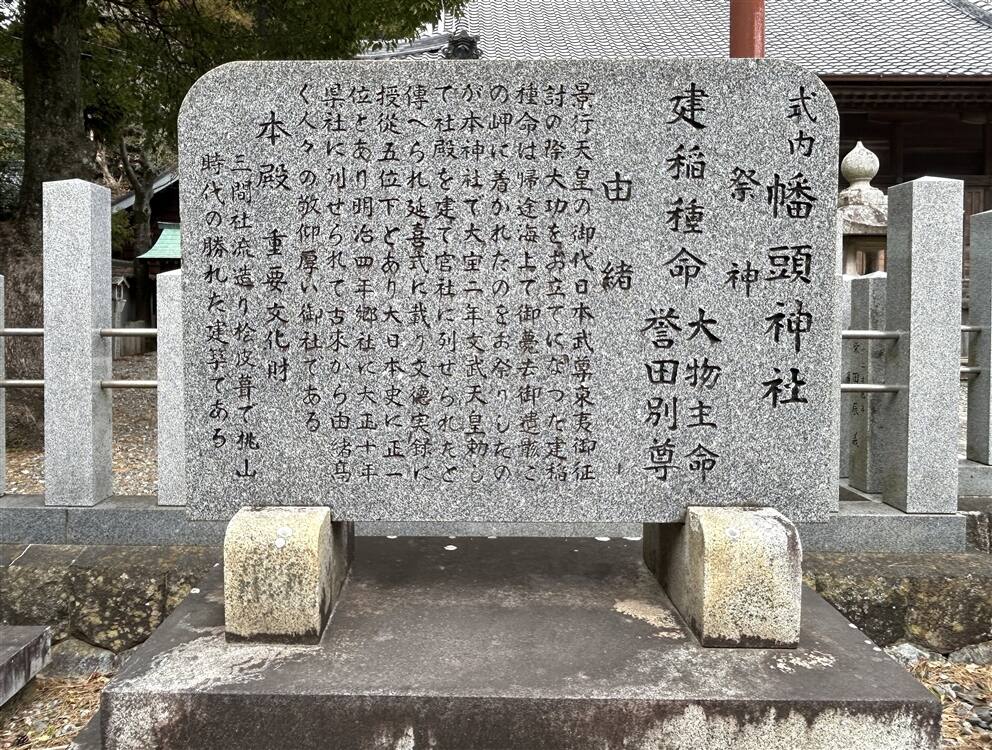 式内 幡頭神社
祭神
建稲種命
大物主命
誉田別尊
由緒
景行天皇の御代日本武尊東夷御征
討の際大功をお立てになつた建稲
種命は帰途海上で御薨去御遺骸こ
の岬に着かれたのをお祭りしたの
が本神社で大宝二年文武天皇勅し
て社殿を建て官社に列せられたと
傳へられ延喜式に載り文徳実録に
授従五位下とあり大日本史に正一
位とあり明治四年郷社に大正十年
県社に列せられて古来から由緒高
く人々の敬仰厚い御社である
本殿 重要文化財
三間社流造り桧皮葺で桃山
時代の勝れた建築である